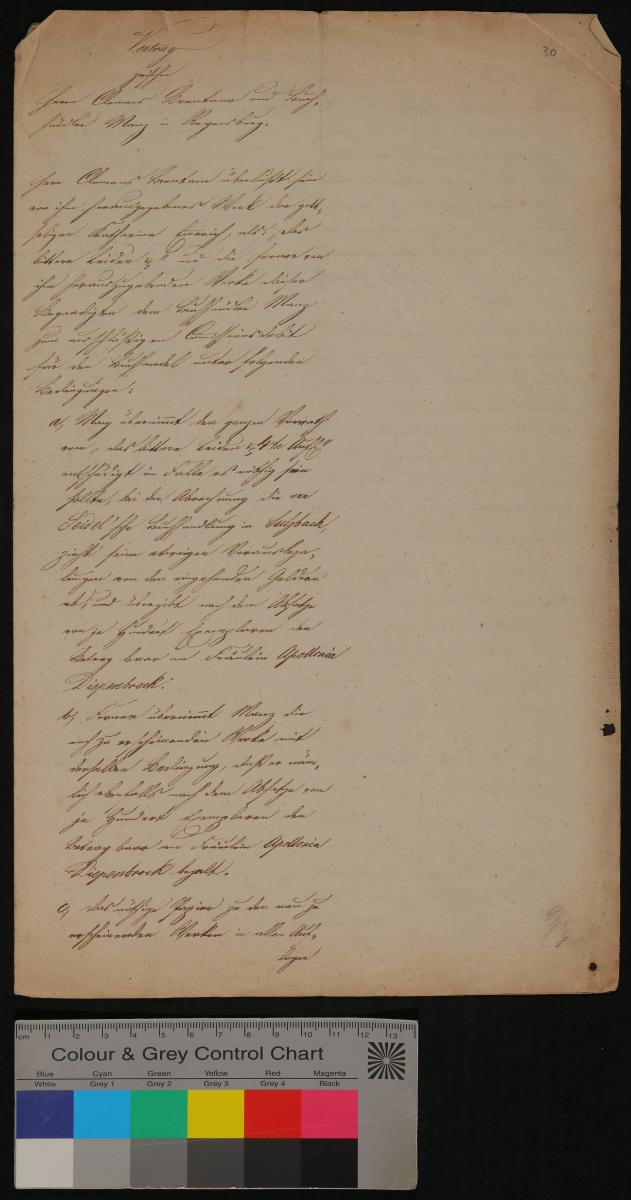 30
Vertrag
zwischen
Herrn Clemens Brentano und Buch-
händler Manz in Regensburg.
Herr Clemens Brentano überläßt sein
von ihm herausgegebenes Werk der gott-
seligen Katharina Emerich, als: „Das
bittere Leiden" und die ferner von
ihm herauszugebenden Werke dieser
Begnadigten dem Buchhändler Manz
zum ausschlüßigen Commissionsdebit
für den Buchhandel unter folgenden
Bedingungen:
a, Manz übernimmt den ganzen Vorrath
vom „das bittere Leiden 4te Aufl."
entschädigt im Falle es nöthig sein
sollte, bei der Abrechnung die von
Seidel'sche Buchhandlung in Sulzbach,
zieht seine etwaigen Vorausbeza-
lungen von den eingehenden Geldern
ab, und übergibt nach dem Absatze
von je Hundert Exemplaren den
Betrag baar an Fräulein Apollonia
Diepenbrock.
b, Ferner übernimmt Manz die
noch zu erscheinenden Werke mit
derselben Bedingung, daß er näm-
lich ebenfalls nach dem Absatze von
je Hundert Exemplaren den
Betrag baar an Fräulein Apollonia
Diepenbrock bezalt.
c, Das nöthige Papier zu den neu zu
erscheinenden Werken in allen Auf-
lagen
cm 1 2 3 4 5 6 7 8 9 10 11 12 13
Colour & Grey Control Chart
Blue Cyan Green Yellow Red Magenta
White Grey 1 Grey 2 Grey 3 Grey 4 Black